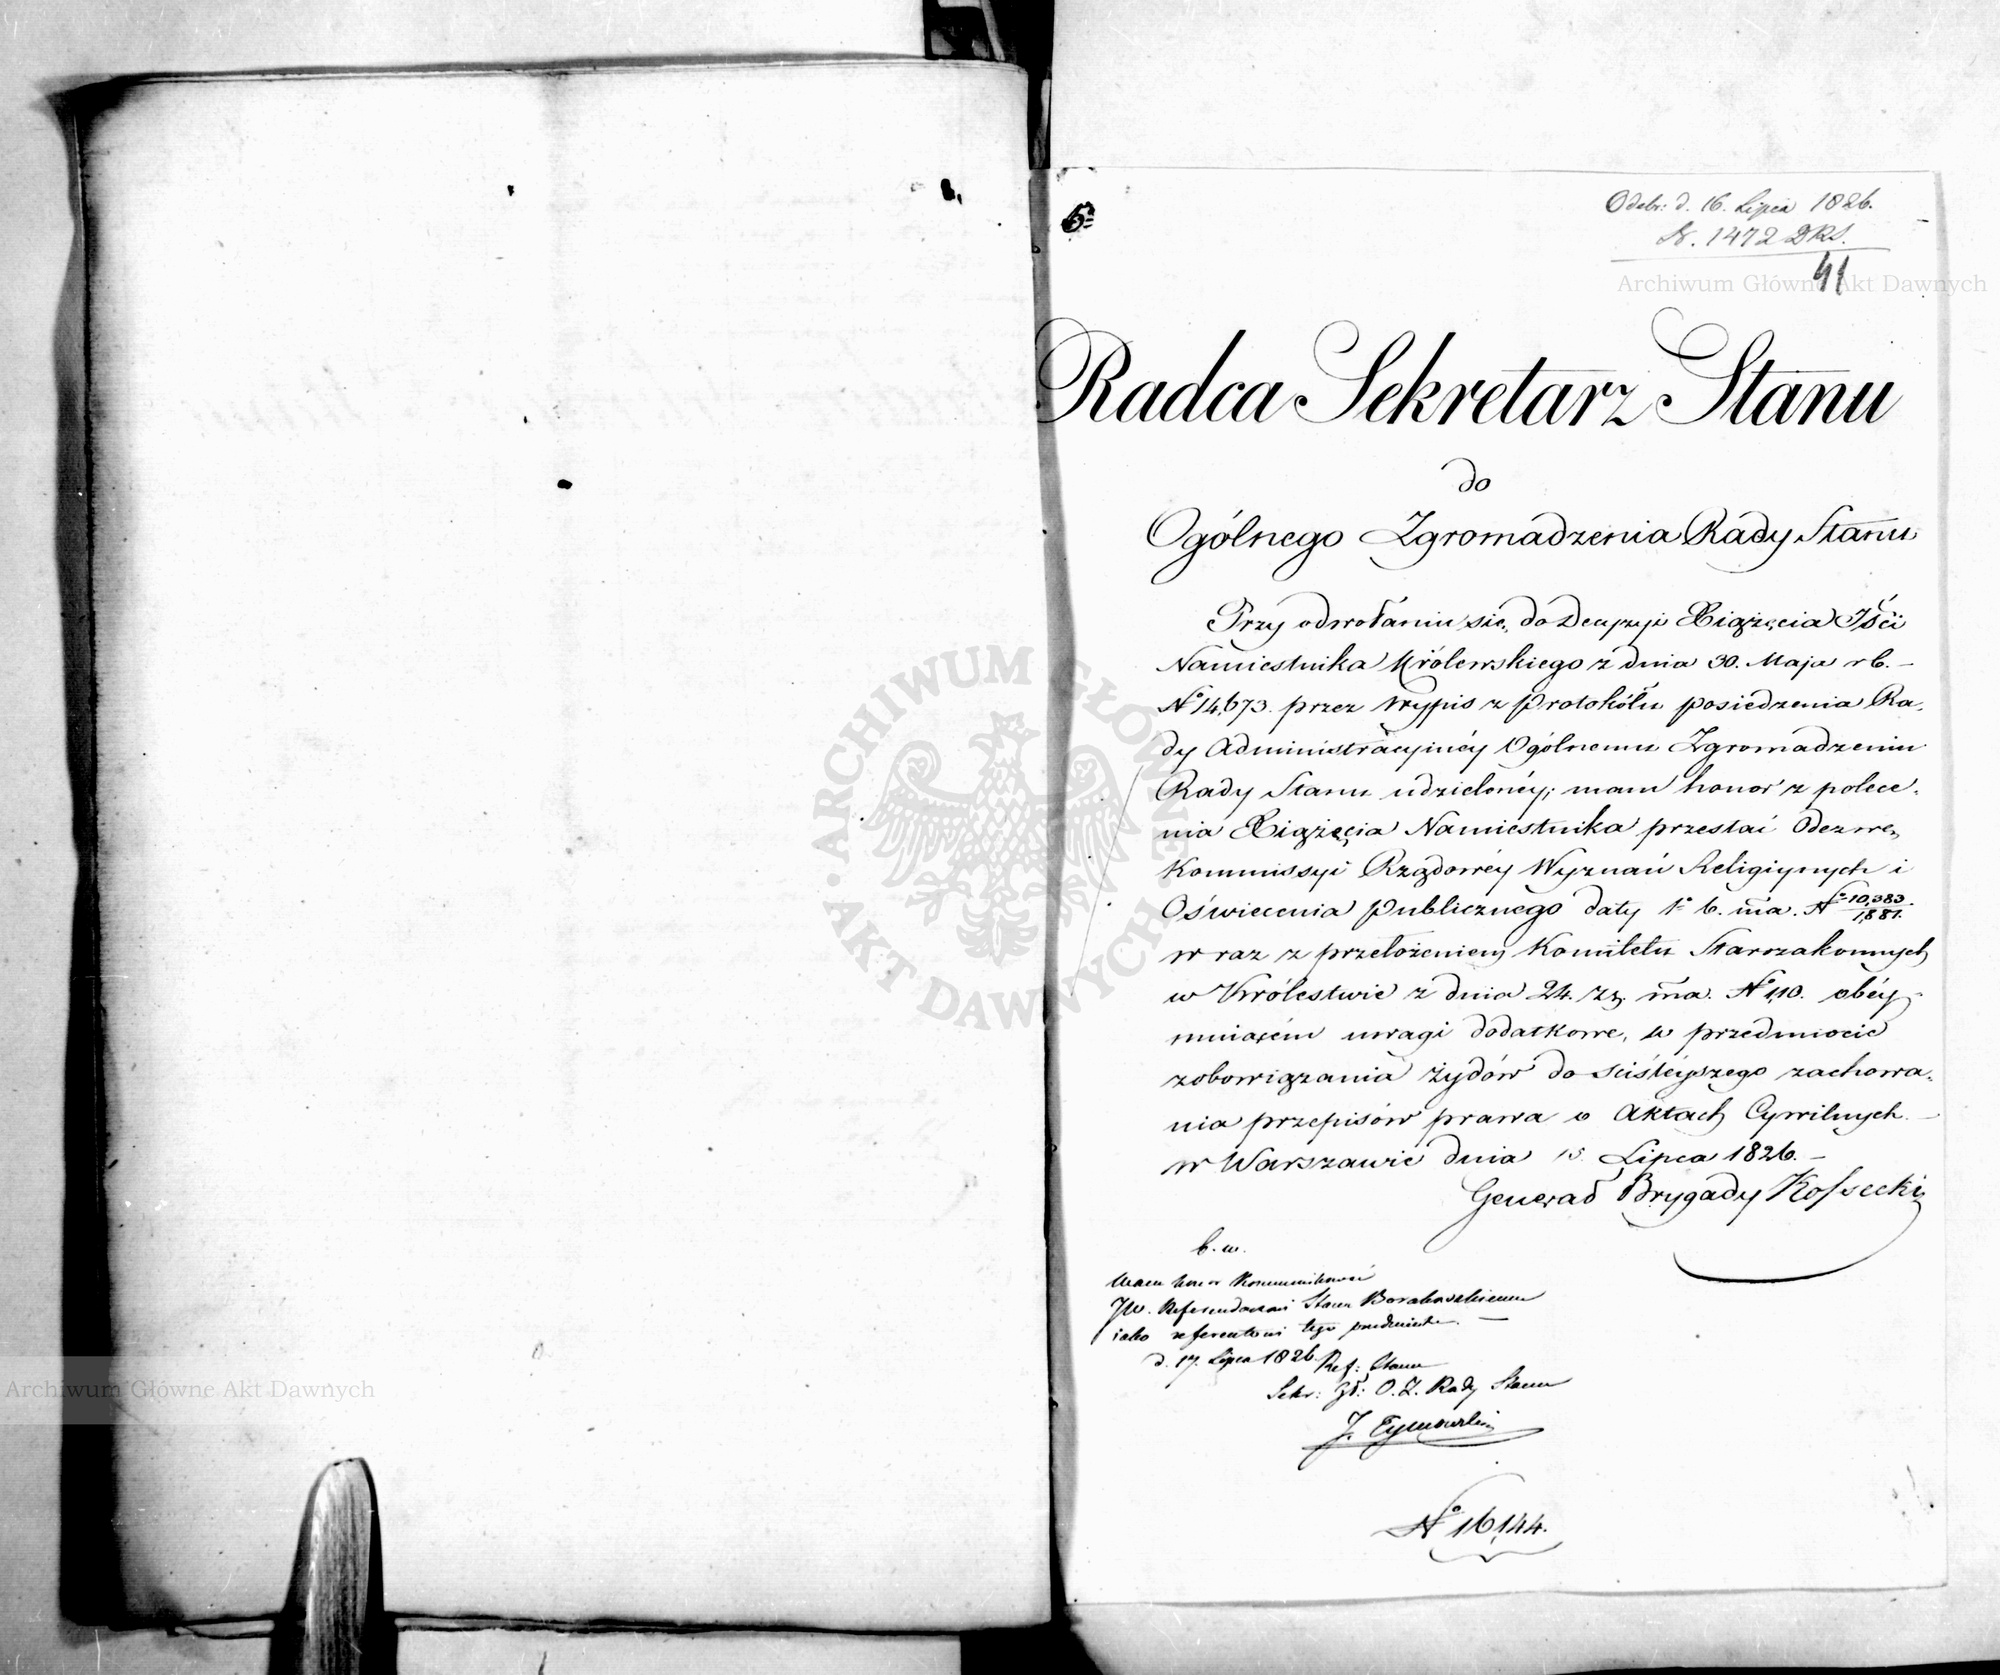 5
Odebr: d. 16. Lipca 1826.
N. 1472 DRS.
41
Archiwum Główne Akt Dawnych
Radca Sekretarz Stanu
do
Ogólnego Zgromadzenia Rady Stanu
Przy odwołaniu się, do Decyzyi Xiążęcia JŚci
Namiestnika Królewskiego z dnia 30. Maja rb. –
No 14,673. przez wypis z Protokółu posiedzenia Ra-
dy Administracyjnéy Ogólnemu Zgromadzeniu
Rady Stanu udzielonéy; mam honor z polece-
nia Xiążęcia Namiestnika przesłać Odezwę
Kommissyi Rządowéy Wyznań Religiynych i
Oświecenia Publicznego daty 1o b. ma. No 10,383/1,881.
wraz z przełożeniem Komitetu Starozakonnych
w Królestwie z dnia 24. zg. ma. No 110. obéy-
muiącém uwagi dodatkowe, w przedmiocie
zobowiązania żydów do ściśléyszego zachowa-
nia przepisów prawa o Aktach Cywilnych. –
w Warszawie dnia 15. Lipca 1826. –
Generał Brygady Kossecki
b. w.
Mam honor Kommunikować
JW. Referendarzowi Stanu
iako referentowi tego przedmiotu. –
d. 17. Lipca 1826. Ref: Stanu
Sekr: O. Z. Rady Stanu
J.
No 16,144.
ARCHIWUM GŁÓWNE AKT DAWNYCH
Archiwum Główne Akt Dawnych